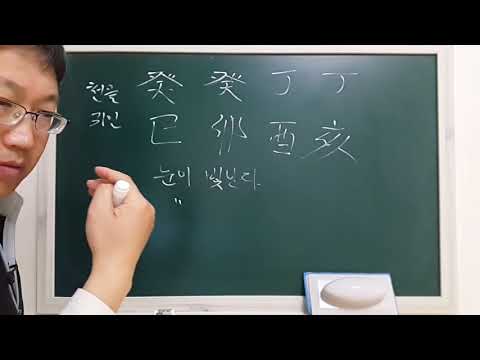 천을 癸 癸 丁 丁
귀인 巳 卯 酉 亥
눈이 빛난다.
"